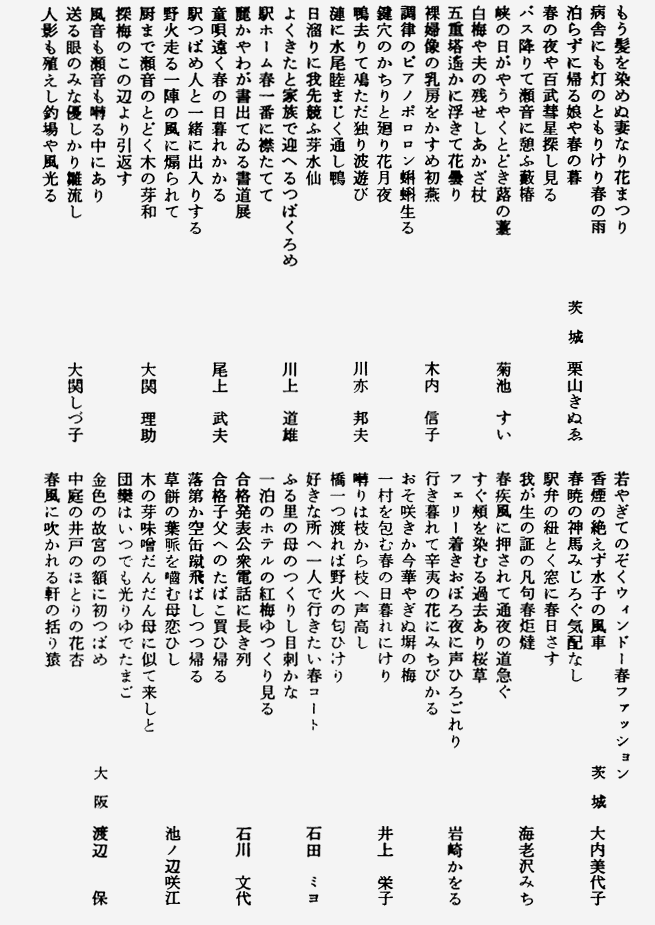 もう髪を染めぬ妻なり花まつり
病舎にも灯のともりけり春の雨
泊らずに帰る娘や春の暮　茨城　栗山きぬゑ
春の夜や百武彗星探し見る
バス降りて瀬音に憩ふ藪椿
峡の日がやうやくとどき蕗の薹　菊池　すい
白梅や夫の残せしあかざ杖
五重塔遙かに浮きて花曇り
裸婦像の乳房をかすめ初燕　木内　信子
調律のピアノポロロン蝌蚪生る
鍵穴のかちりと廻り花月夜
鴨去りて鳰ただ独り波遊び　川亦　邦夫
漣に水尾睦まじく通し鴨
日溜りに我先競ふ芽水仙
よくきたと家族で迎へるつばくろめ　川上　道雄
駅ホーム春一番に襟たてて
麗かやわが書出てゐる書道展
童唄遠く春の日暮れかかる　尾上　武夫
駅つばめ人と一緒に出入りする
野火走る一陣の風に煽られて
厨まで瀬音のとどく木の芽和　大関　理助
探梅のこの辺より引返す
風音も瀬音も囀る中にあり
送る眼のみな優しかり雛流し　大関しづ子
人影も殖えし釣場や風光る
若やぎてのぞくウィンドー春ファッション
香煙の絶えず水子の風車　茨城　大内美代子
春暁の神馬みじろぐ気配なし
駅弁の紐とく窓に春日さす
我が生の証の凡句春炬燵　海老沢みち
春疾風に押されて通夜の道急ぐ
すぐ頬を染むる過去あり桜草
フェリー着きおぼろ夜に声ひろごれり　岩崎かをる
行き暮れて辛夷の花にみちびかる
おそ咲きか今華やぎぬ塀の梅
一村を包む春の日暮れにけり　井上　栄子
囀りは枝から枝へ声高し
橋一つ渡れば野火の匂ひけり
好きな所へ一人で行きたい春コート　石田　ミヨ
ふる里の母のつくりし目刺かな
一泊のホテルの紅梅ゆつくり見る
合格発表公衆電話に長き列　石川　文代
合格子父へのたばこ買ひ帰る
落第か空缶蹴飛ばしつつ帰る
草餅の葉脈を嚙む母恋ひし　池ノ辺咲江
木の芽味噌だんだん母に似て来しと
団欒はいつでも光りゆでたまご
金色の故宮の額に初つばめ　大阪　渡辺　保
中庭の井戸のほとりの花杏
春風に吹かれる軒の括り猿